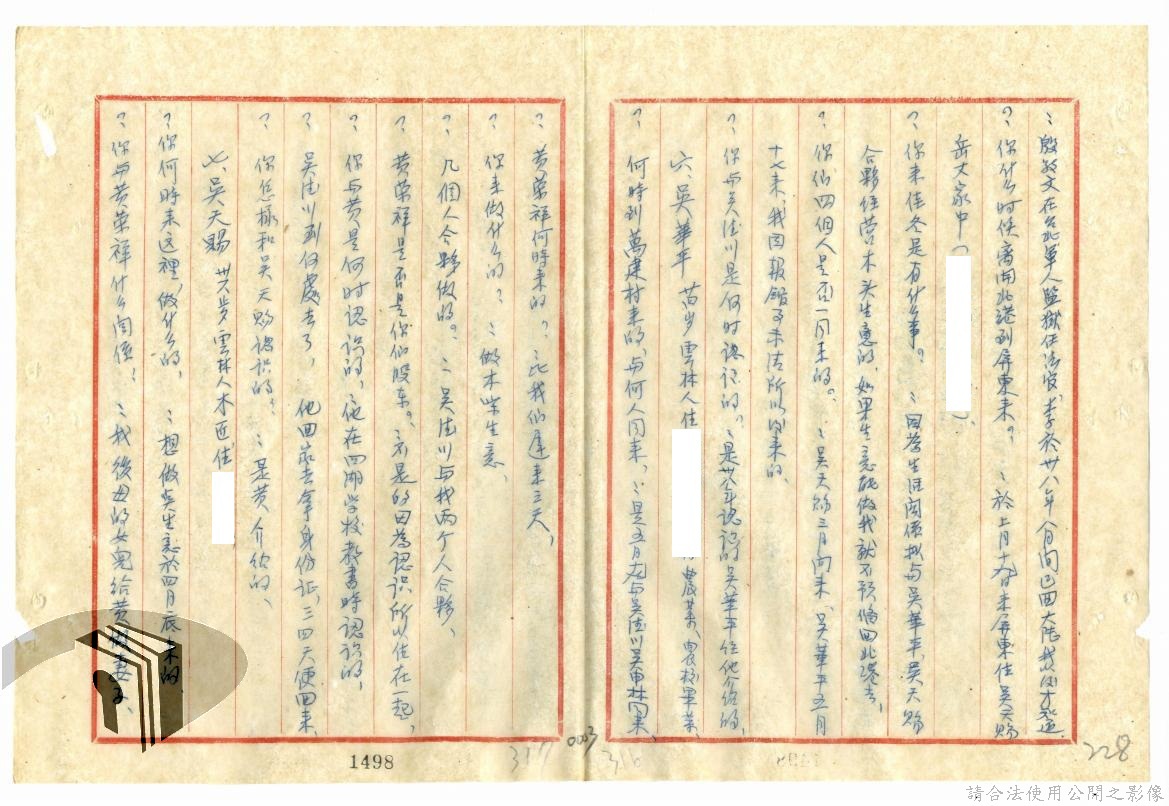 ：殷敬文在台北軍人監獄任法官、李於卅八年八月間已回大陸我後才逃
？你什么时候离開北港到屏東来。：於上月十九日来屏東住吴天賜
岳丈家中（　）、
？你来佳冬是有什么事。：因為生活関係拟与吴華平、吴天賜
合夥经营木头生意的、如果生意能做我就不预備回北港去、
？你们四個人是否一同来的。：吴天賜三月间来、吴華平五月
十七来、我因報館及未法所以後来的、
？你与吴清川是何时認识的。：是卅八年認识的吴華平经他介绍的、
六、吴華平　苗岁雲林人住　農業、農校畢業、
？何時到萬建村来的、与何人同来、：是五月十九与吴清川吴甲林同来、
？黄榮祥何時来的？：比我们遲来三天、
？你来做什么的？：做木柴生意、
？几個人合夥做的。：吴清川与我两个人合夥、
？黄榮祥是否是你们股东。：不是的因為認识所以住在一起、
？你与黄是何时認识的、：他在四湖学校教書時認识的、
？吴清川到何處去了，他回家去拿身份証，三四天便回来
？你怎樣和吴天賜認识的？：是黄介绍的、
七、吴天賜　卅六步雲林人木匠住
？你何時来这裡，做什么的，：想做炭生意於四月底来的
？你与黄榮祥什么関係？：我後母的女兒給黄做妻子、
1498
317
0003
316
228
請合法使用公開之影像